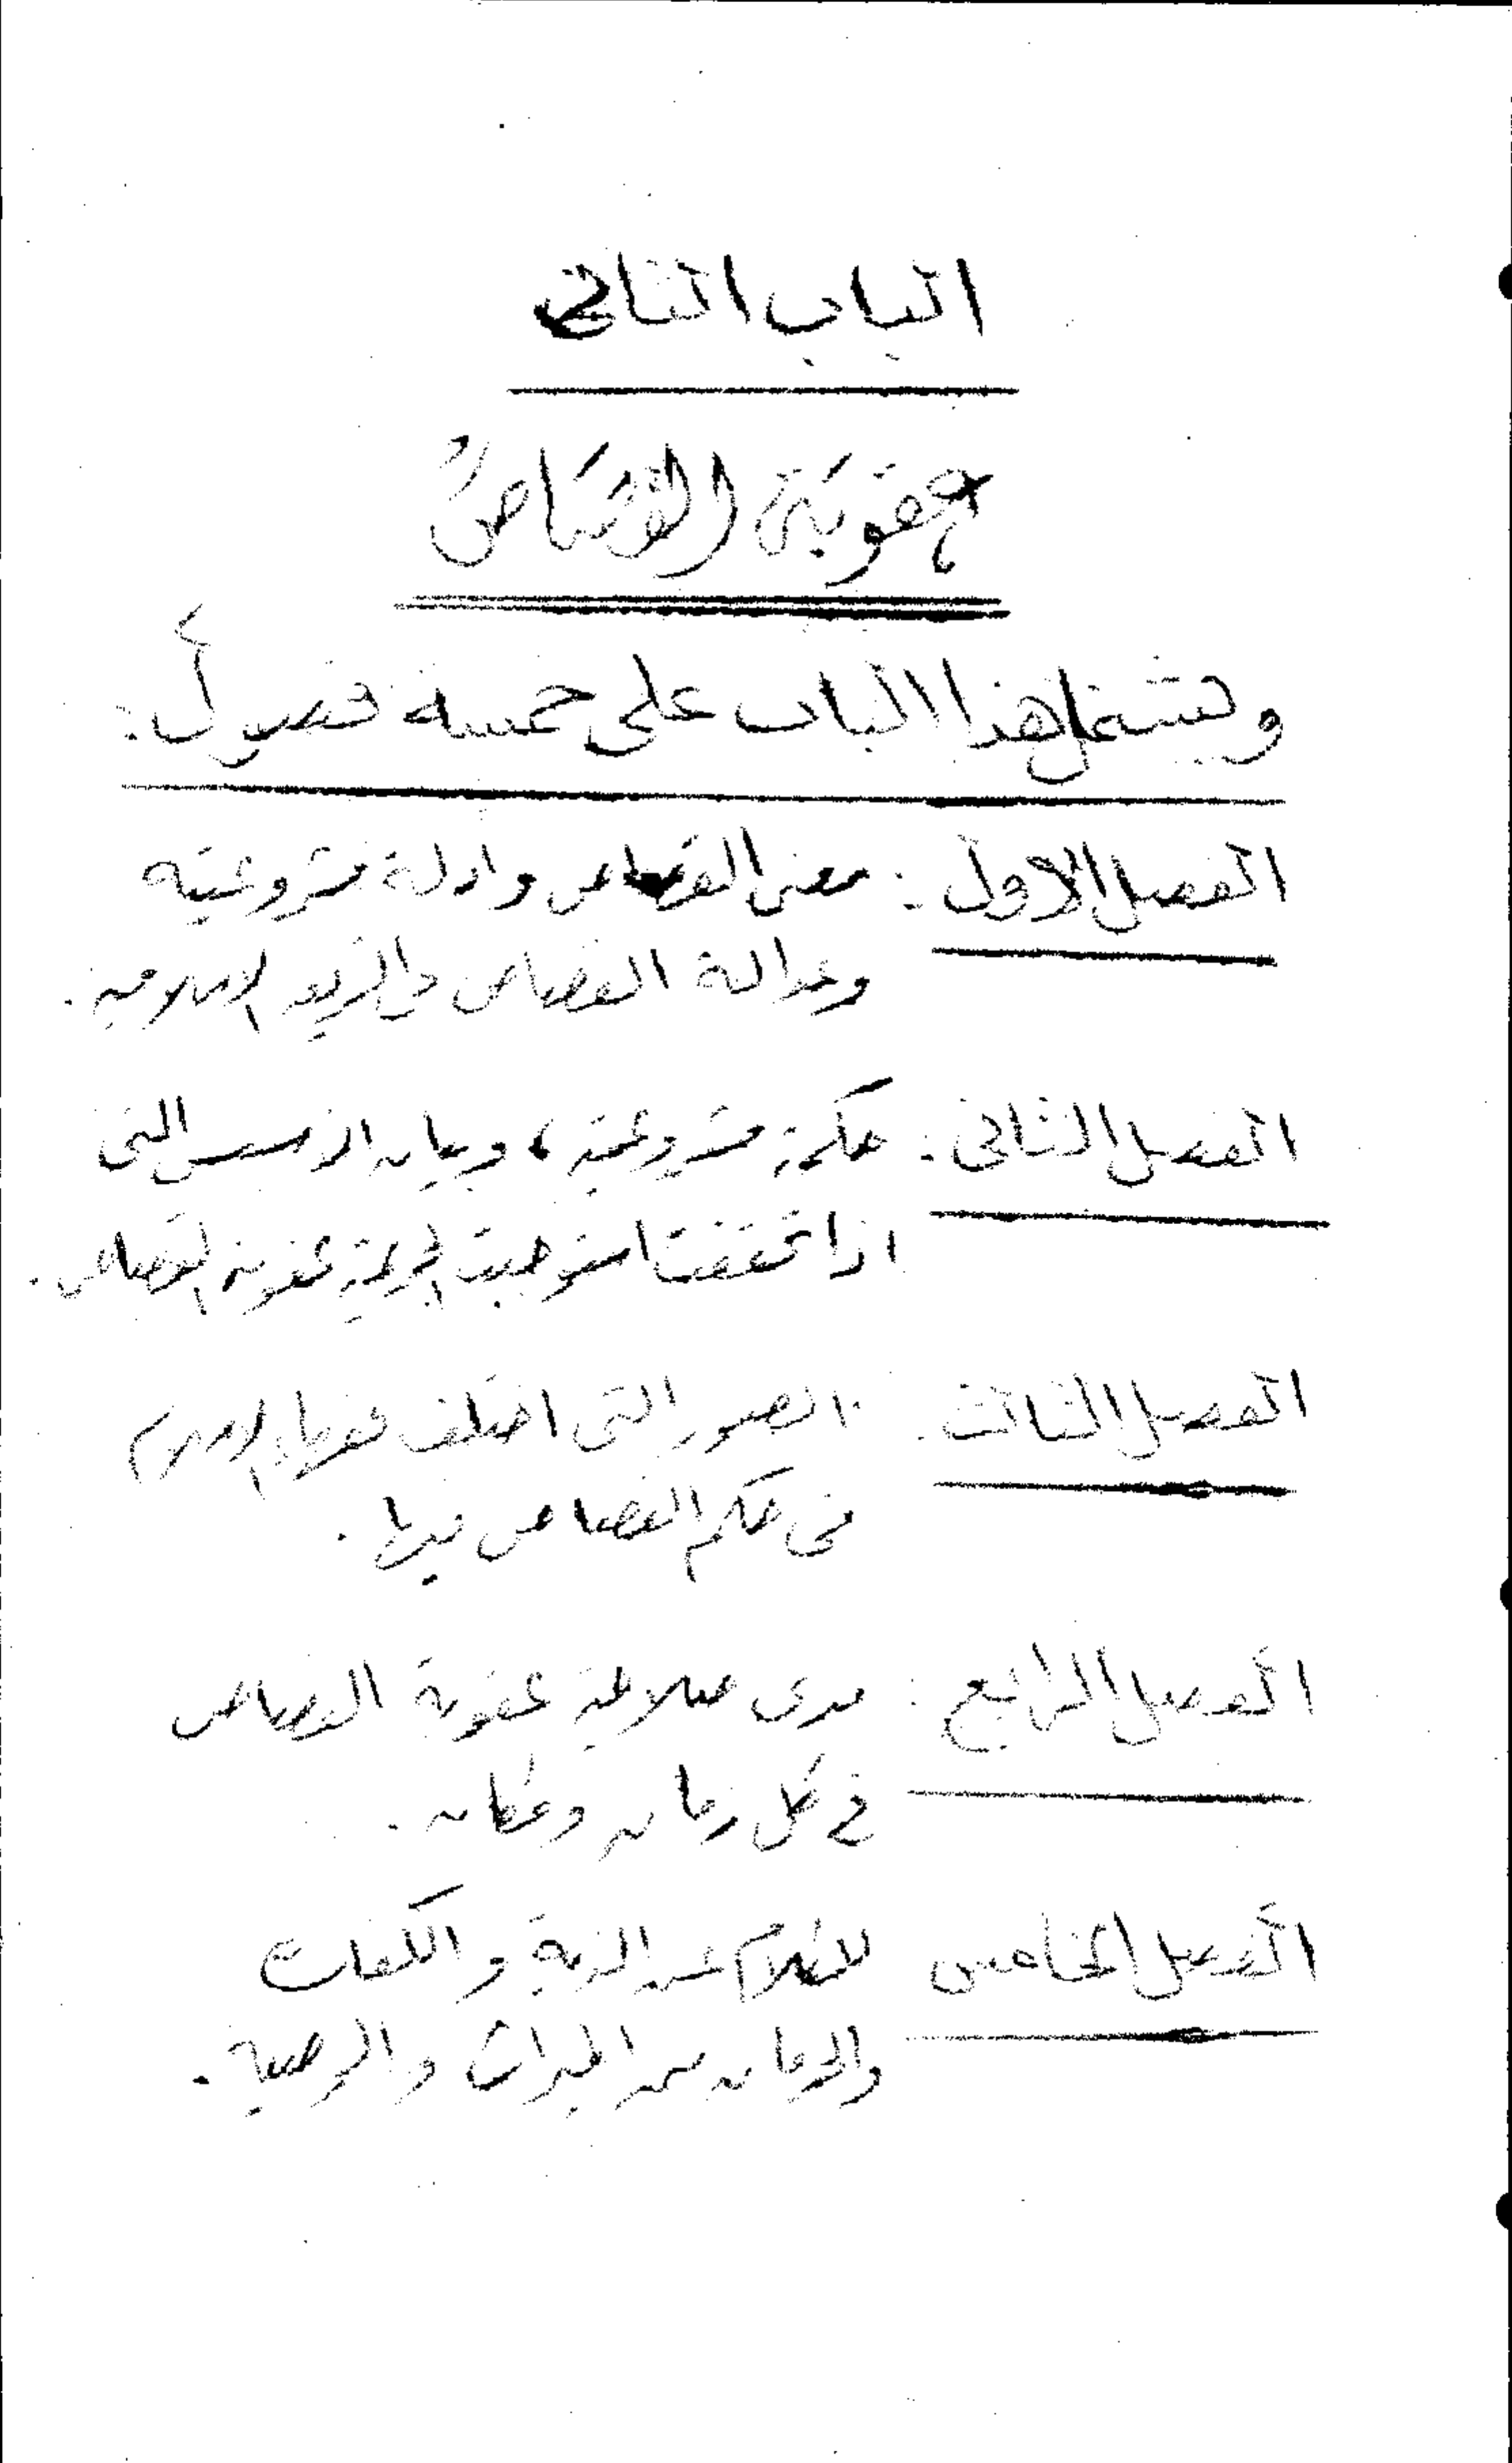 الباب الثاني
عقوبة القصاص
ويشتمل هذا الباب على خمسة فصول:
الفصل الاول: معنى القصاص وادلة مشروعيته
وعدالة القصاص في الشريعة الاسلامية.
الفصل الثانى: حكمة مشروعيته، وبيان الاسس التى
اذا تحققت استوجبت الجريمة عقوبة القصاص.
الفصل الثالث: الصور التى اختلف فقهاء الاسلام
فى حكم القصاص فيها.
الفصل الرابع: مدى صلاحية عقوبة القصاص
في كل زمان ومكان.
الفصل الخامس للكلام عن الدية والكفارت
والحرمان من الميراث والوصية.